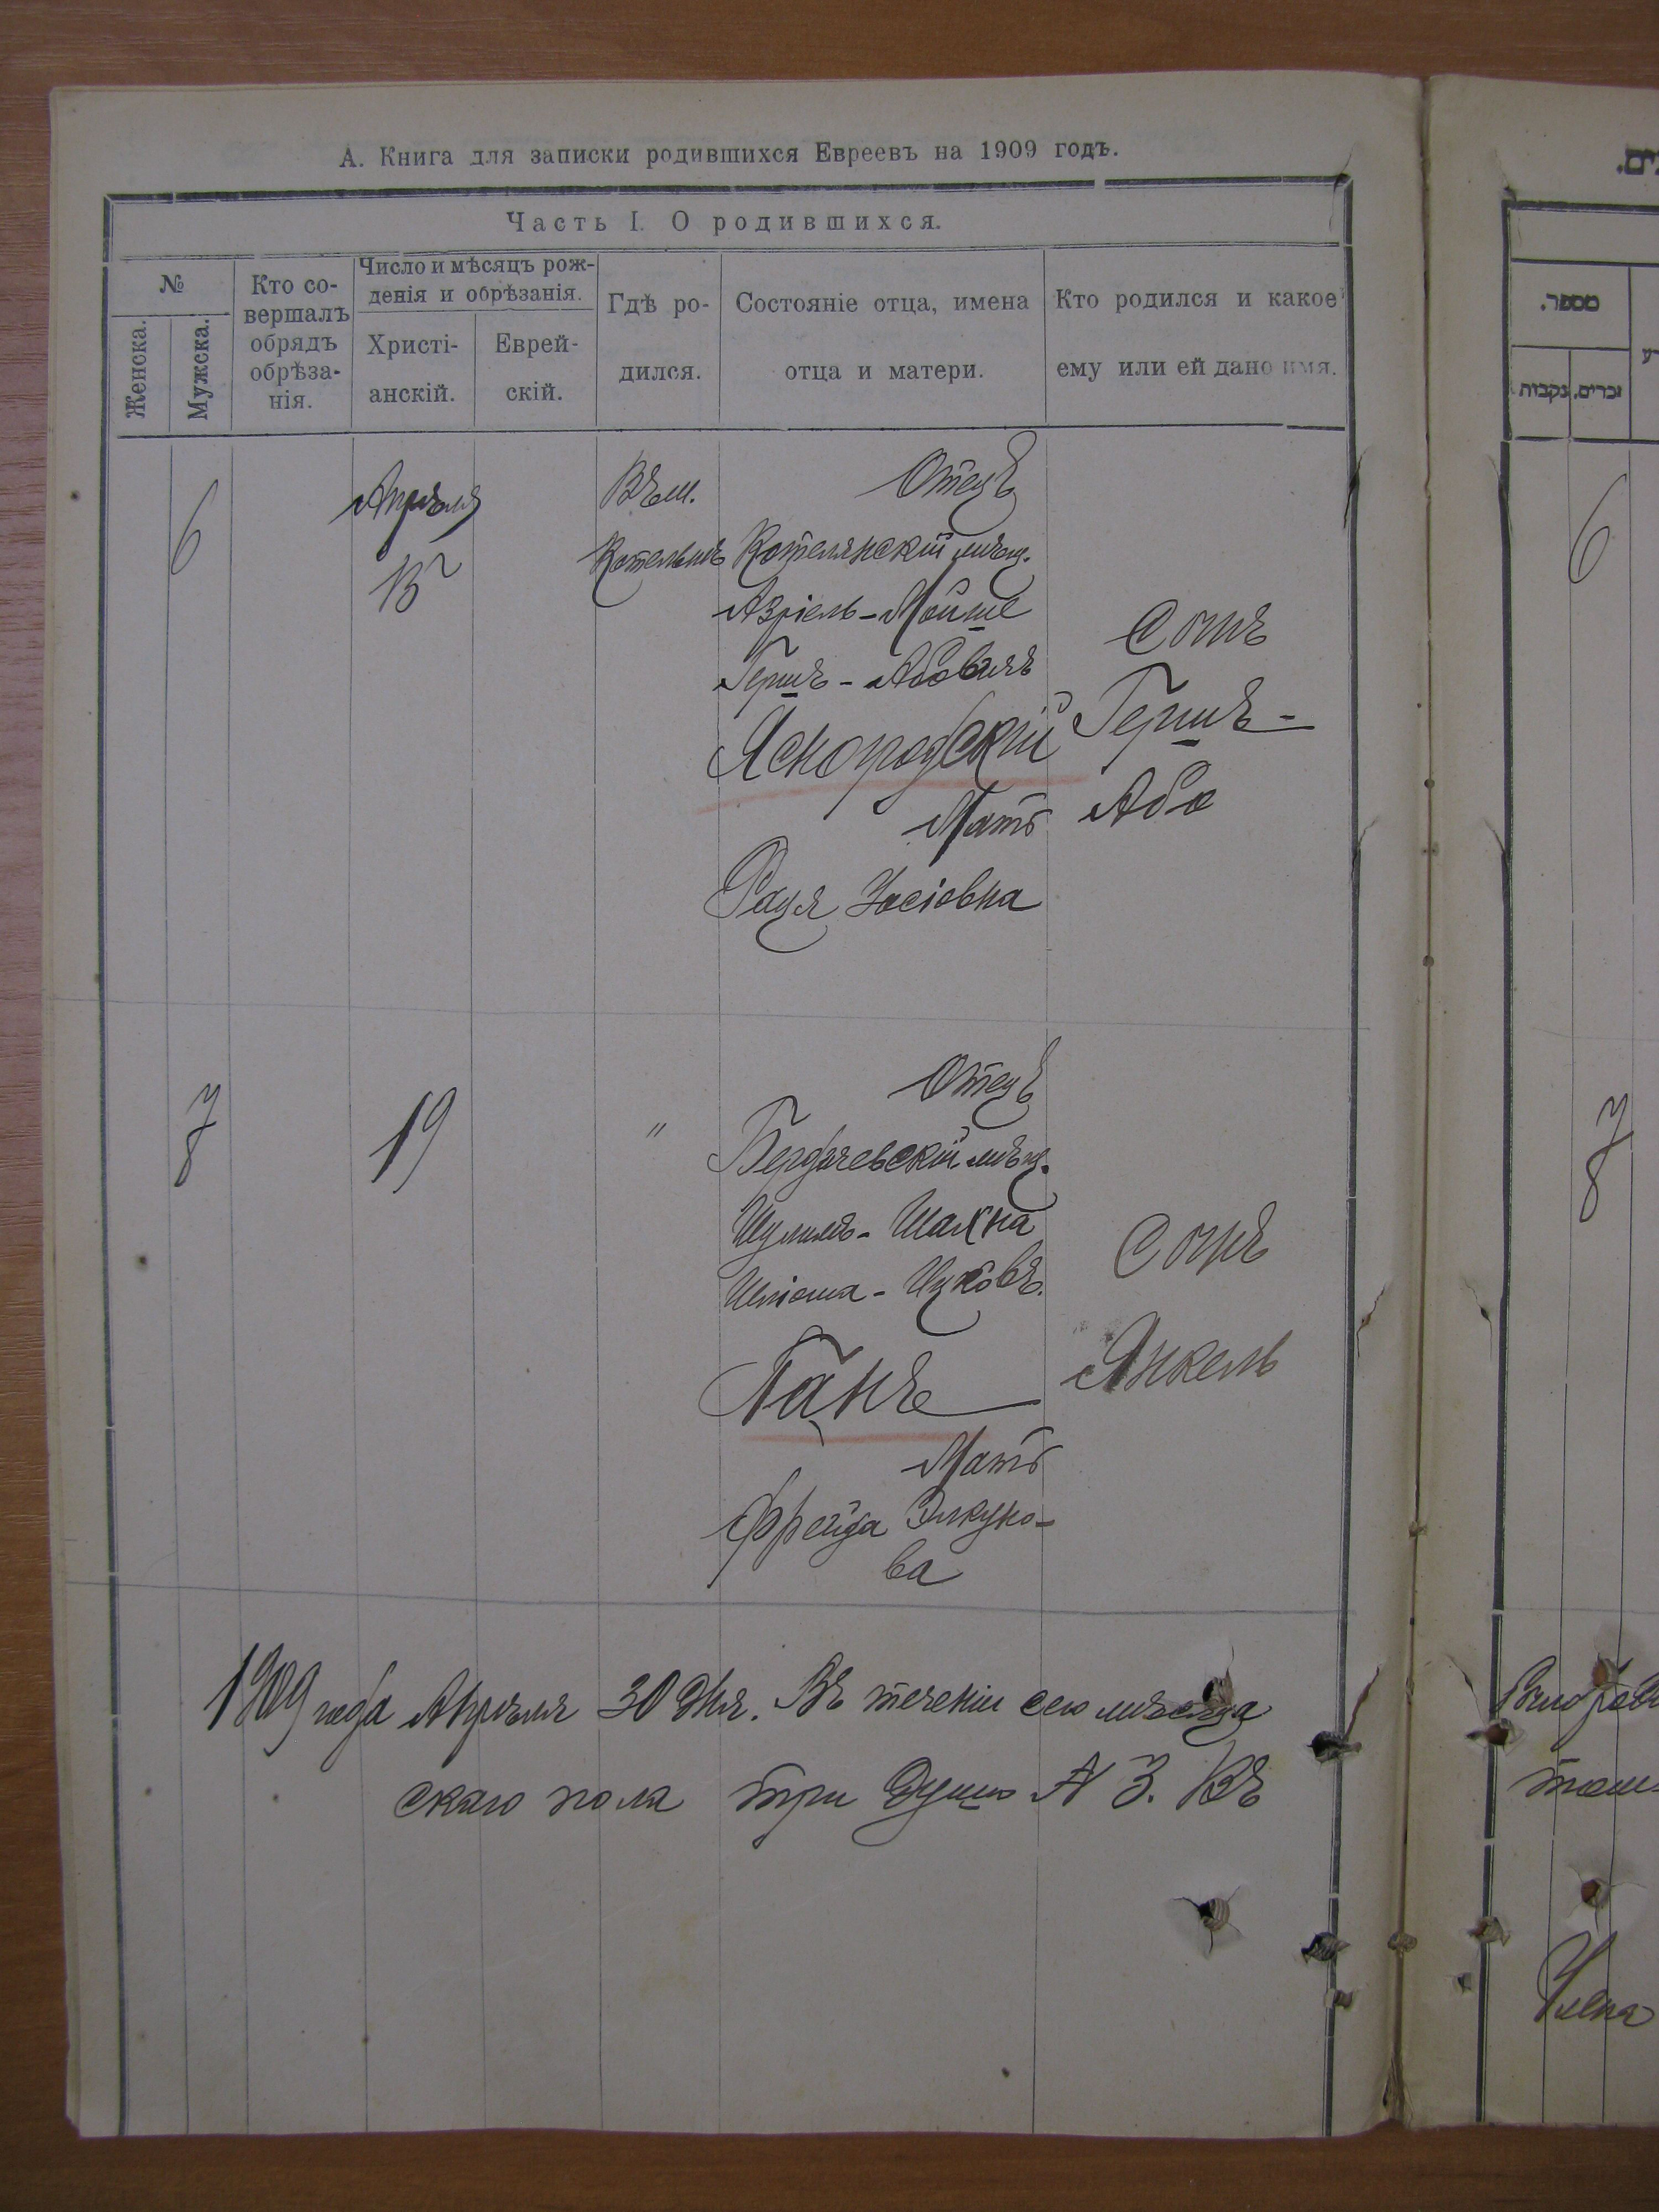 А. Книга для записки родившихся Евреевъ на 1909 годъ.
Часть I. О родившихся.
№
Женска.
Мужска.
Кто со-
вершалъ
обрядъ
обрѣза-
нія.
Число и мѣсяцъ рож-
денія и обрѣзанія.
Христі-
анскій.
Еврей-
скій.
Гдѣ ро-
дился.
Состояніе отца, имена
отца и матери.
Кто родился и какое
ему или ей дано имя.
6
Апрѣля
Въ м.
Котельнѣ
Отецъ
Котелянскій мѣщ.
Азріель-Мойше
Гершъ-Абовичъ
Ясногродскій
Мать
Рася Іосіовна
Сынъ
Гершъ-
Або
7
19
"
Отецъ
Бердичевскій мѣщ.
Шулимъ-Шахна
Шліома-Ицковъ.
Ганъ
Мать
Фрейда Элкуно-
ва
Сынъ
Янкель
1909 года Апрѣля 30 дня. Въ теченіи сего мѣсяца
скаго пола три душъ № 3. Въ
ים.
מספר.
זכרים.
נקבות
6
7
Члена